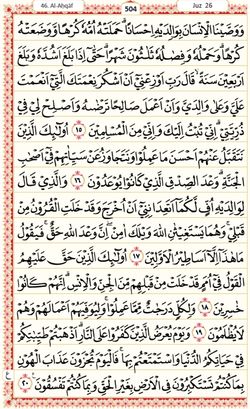 46. Al-Ahqāf
504
Juz 26
وَوَصَّيْنَا الْاِنْسَانَ بِوَالِدَيْهِ اِحْسَانًا ۗ حَمَلَتْهُ اُمُّهٗ كُرْهًا وَّوَضَعَتْهُ
كُرْهًا ۗ وَحَمْلُهٗ وَفِصٰلُهٗ ثَلٰثُوْنَ شَهْرًا ۗ حَتّٰىٓ اِذَا بَلَغَ اَشُدَّهٗ وَبَلَغَ
اَرْبَعِيْنَ سَنَةً ۙ قَالَ رَبِّ اَوْزِعْنِيْٓ اَنْ اَشْكُرَ نِعْمَتَكَ الَّتِيْٓ اَنْعَمْتَ
عَلَيَّ وَعَلٰى وَالِدَيَّ وَاَنْ اَعْمَلَ صَالِحًا تَرْضٰىهُ وَاَصْلِحْ لِيْ فِيْ
ذُرِّيَّتِيْ ۗ اِنِّيْ تُبْتُ اِلَيْكَ وَاِنِّيْ مِنَ الْمُسْلِمِيْنَ ١٥ اُولٰۤىِٕكَ الَّذِيْنَ
نَتَقَبَّلُ عَنْهُمْ اَحْسَنَ مَا عَمِلُوْا وَنَتَجَاوَزُ عَنْ سَيِّاٰتِهِمْ فِيْٓ اَصْحٰبِ
الْجَنَّةِ ۗ وَعْدَ الصِّدْقِ الَّذِيْ كَانُوْا يُوْعَدُوْنَ ١٦ وَالَّذِيْ قَالَ
لِوَالِدَيْهِ اُفٍّ لَّكُمَآ اَتَعِدَانِنِيْٓ اَنْ اُخْرَجَ وَقَدْ خَلَتِ الْقُرُوْنُ مِنْ
قَبْلِيْ ۚ وَهُمَا يَسْتَغِيْثٰنِ اللّٰهَ وَيْلَكَ اٰمِنْ ۖ اِنَّ وَعْدَ اللّٰهِ حَقٌّ ۚ فَيَقُوْلُ
مَا هٰذَآ اِلَّآ اَسَاطِيْرُ الْاَوَّلِيْنَ ١٧ اُولٰۤىِٕكَ الَّذِيْنَ حَقَّ عَلَيْهِمُ
الْقَوْلُ فِيْٓ اُمَمٍ قَدْ خَلَتْ مِنْ قَبْلِهِمْ مِّنَ الْجِنِّ وَالْاِنْسِ ۗ اِنَّهُمْ كَانُوْا
خٰسِرِيْنَ ١٨ وَلِكُلٍّ دَرَجٰتٌ مِّمَّا عَمِلُوْا ۚ وَلِيُوَفِّيَهُمْ اَعْمَالَهُمْ وَهُمْ
لَا يُظْلَمُوْنَ ١٩ وَيَوْمَ يُعْرَضُ الَّذِيْنَ كَفَرُوْا عَلَى النَّارِ ۗ اَذْهَبْتُمْ طَيِّبٰتِكُمْ
فِيْ حَيَاتِكُمُ الدُّنْيَا وَاسْتَمْتَعْتُمْ بِهَا ۚ فَالْيَوْمَ تُجْزَوْنَ عَذَابَ الْهُوْنِ
بِمَا كُنْتُمْ تَسْتَكْبِرُوْنَ فِى الْاَرْضِ بِغَيْرِ الْحَقِّ وَبِمَا كُنْتُمْ تَفْسُقُوْنَ ٢٠
ع